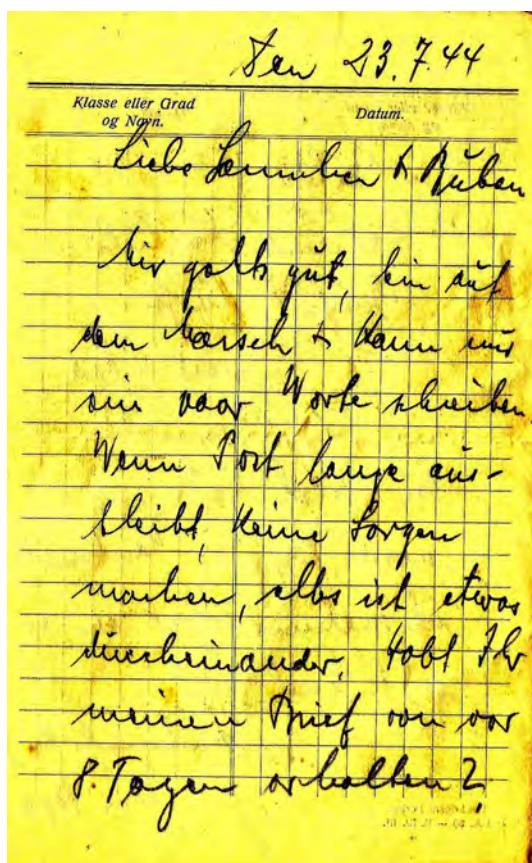 Den 23.7.44
Klasse eller Grad og Navn.
Datum.
Liebe & Buben
Mir geht's gut, bin auf
dem Marsch & kann nur
ein paar Worte schreiben.
Wenn Post lange aus-
bleibt, keine Sorgen
machen, alles ist etwas
durcheinander. Habt Ihr
meinen Brief von vor
8 Tagen erhalten?